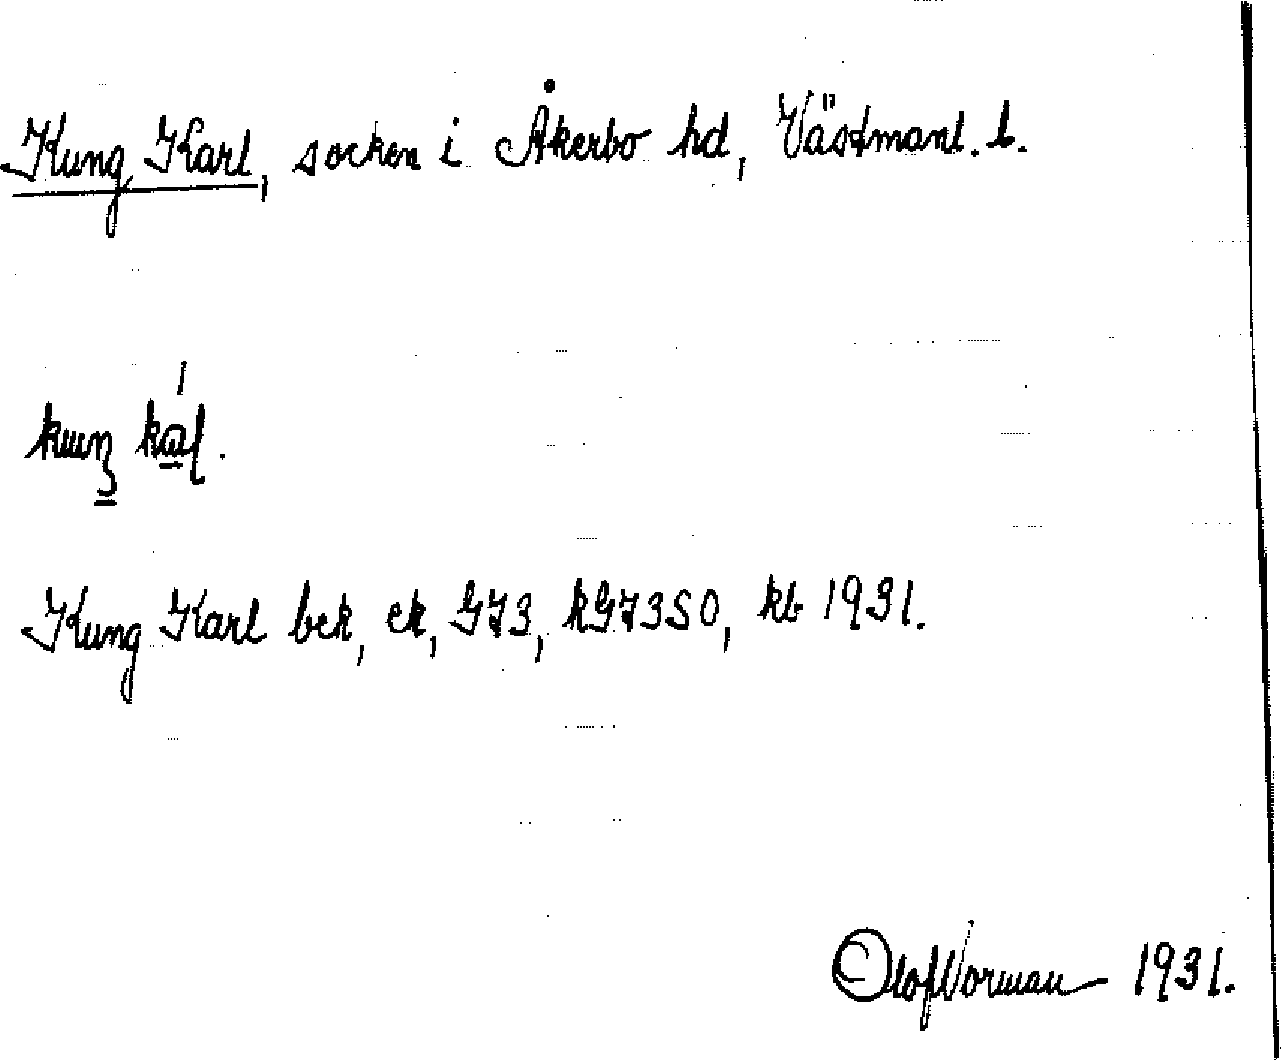 Kung Karl, socken i Åkerbo hd, Västmanl. l.
kuŋ kál.
Kung Karl bek, ek, GJ3, kGJ3SO, kb 1931.
Olof Norman 1931.